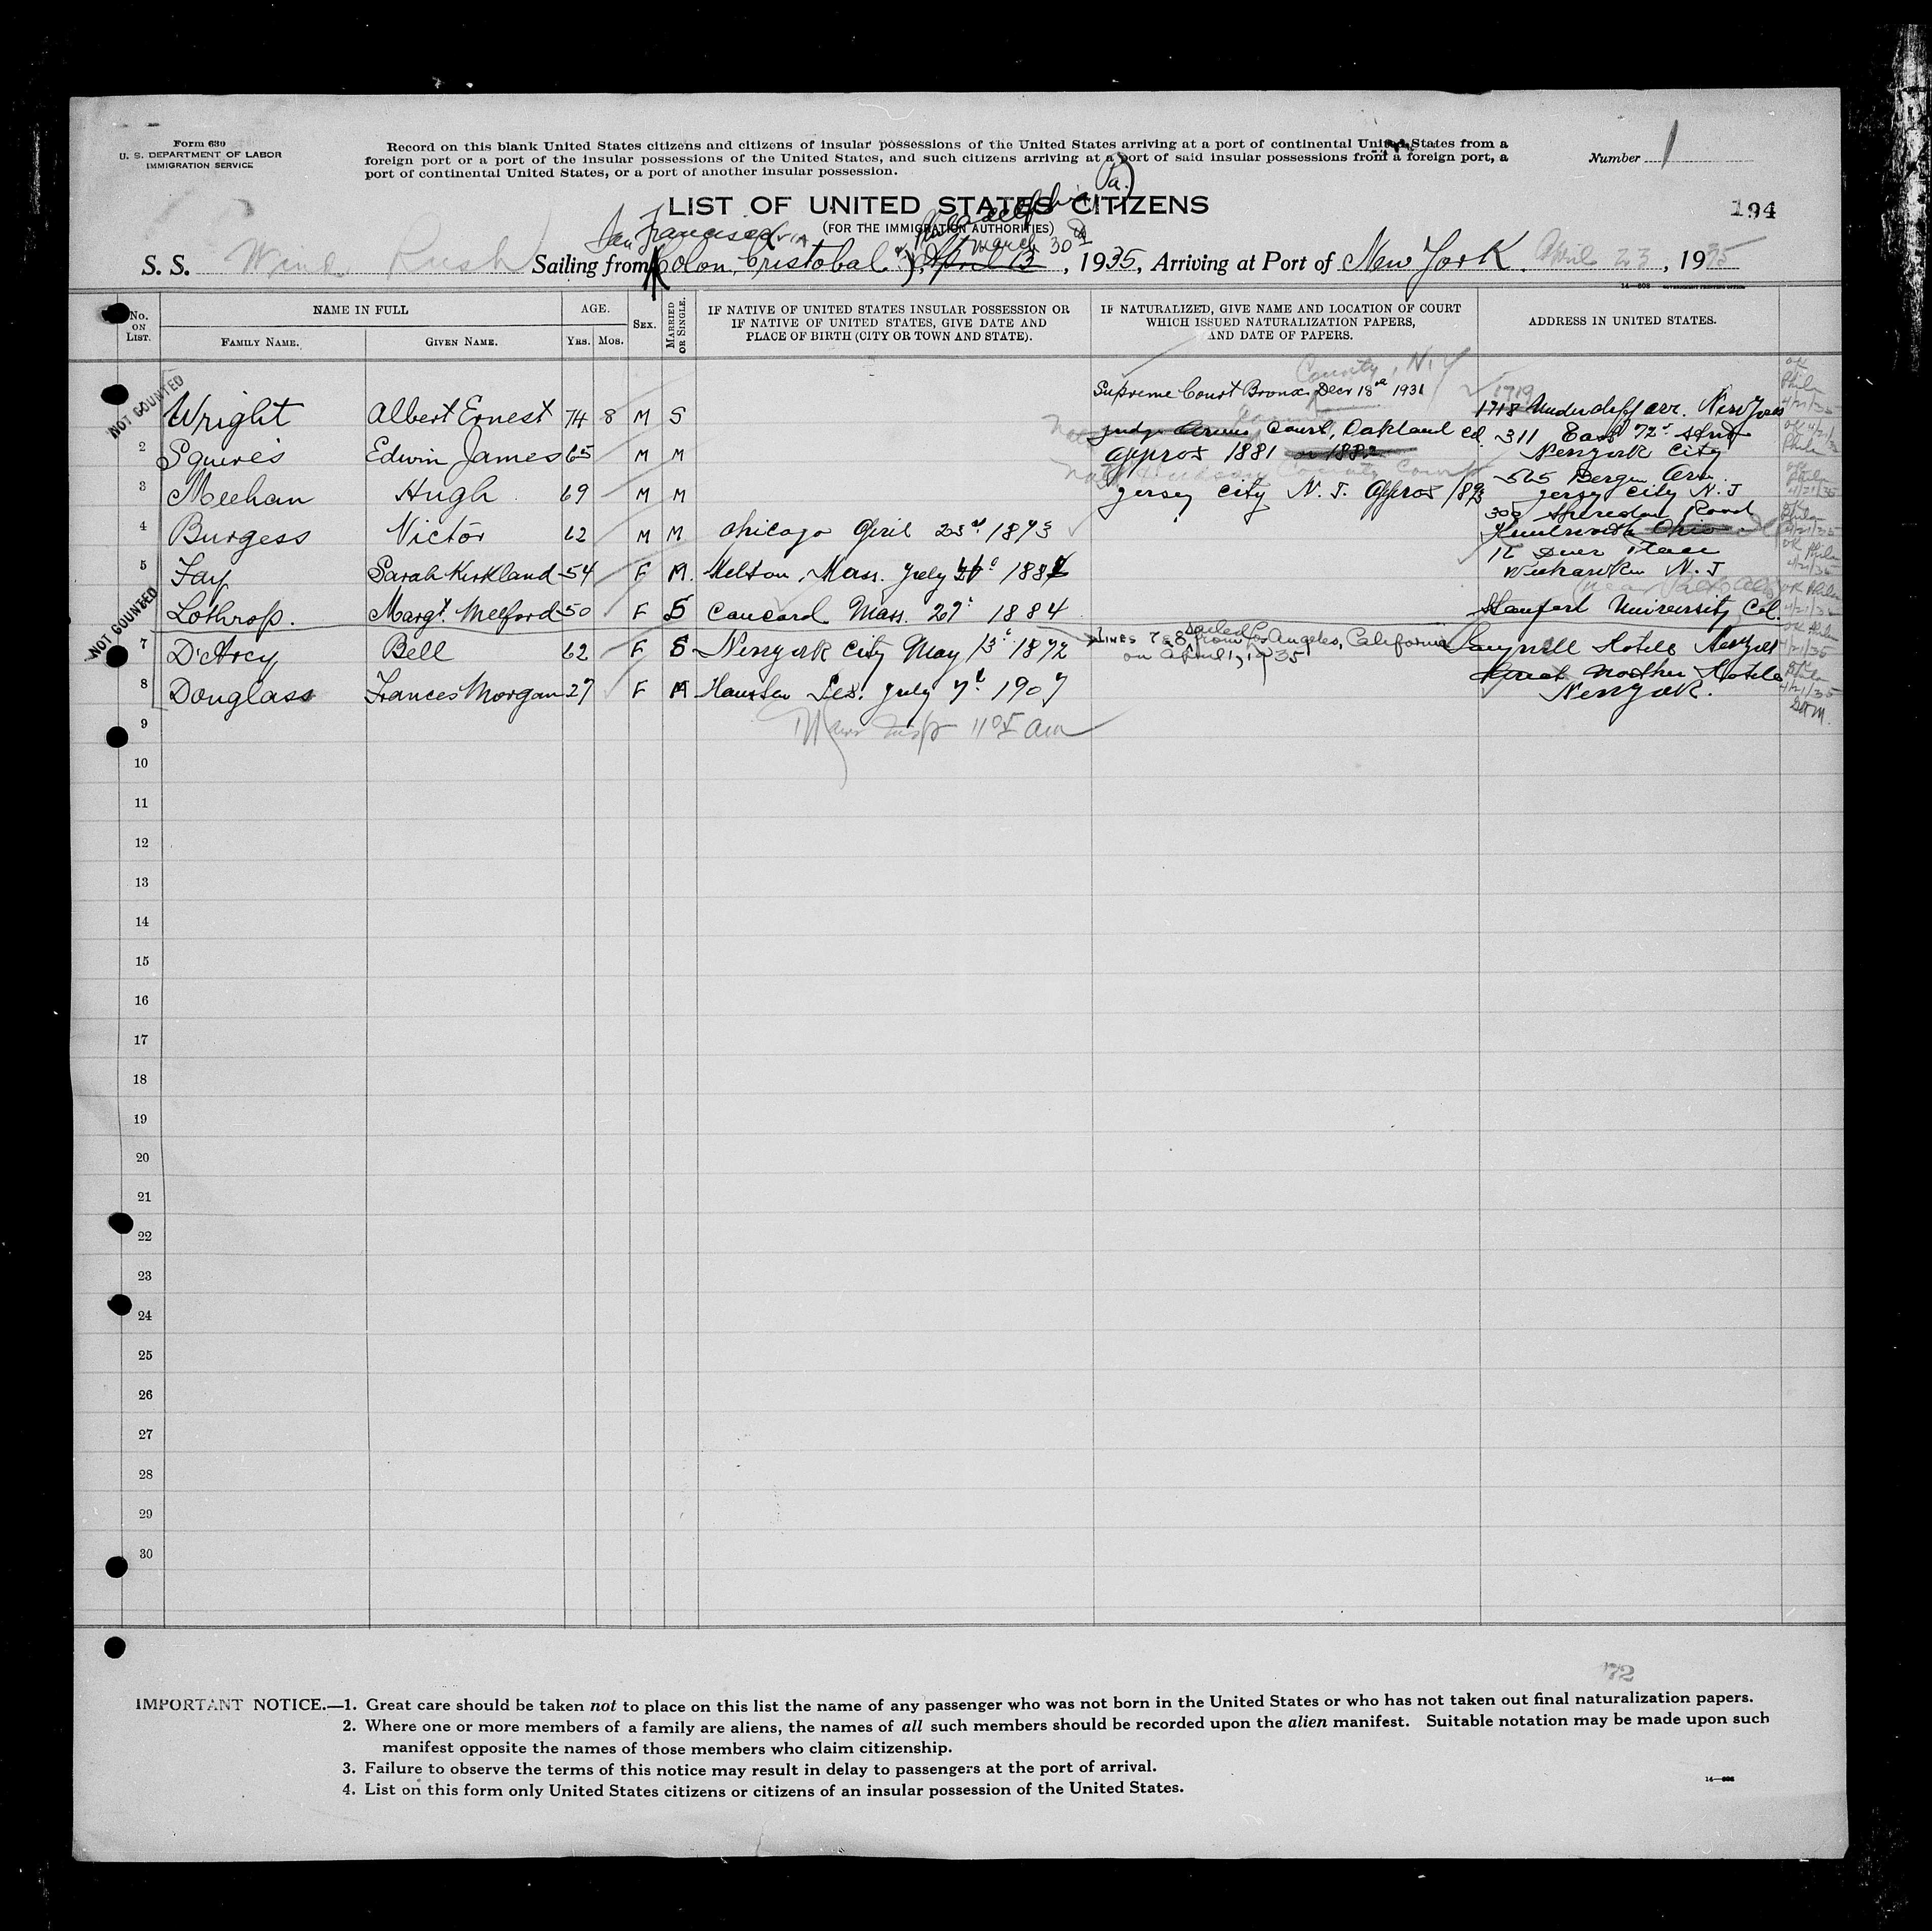 Form 630
U. S. DEPARTMENT OF LABOR
IMMIGRATION SERVICE
Record on this blank United States citizens and citizens of insular possessions of the United States arriving at a port of continental United States from a
foreign port or a port of the insular possessions of the United States, and such citizens arriving at a port of said insular possessions from a foreign port, a
port of continental United States, or a port of another insular possession.
Number 1
LIST OF UNITED STATES CITIZENS
(FOR THE IMMIGRATION AUTHORITIES)
194
San Francisco VIA Philadelphia, Pa.)
March 30th
S. S. Wind Rush Sailing from Colon, Cristobal & April 13, 1935, Arriving at Port of New York. April 23, 1935
14—608 GOVERNMENT PRINTING OFFICE
No. ON LIST.
NAME IN FULL
FAMILY NAME.
GIVEN NAME.
AGE.
YRS. MOS.
SEX.
MARRIED OR SINGLE.
IF NATIVE OF UNITED STATES INSULAR POSSESSION OR
IF NATIVE OF UNITED STATES, GIVE DATE AND
PLACE OF BIRTH (CITY OR TOWN AND STATE).
IF NATURALIZED, GIVE NAME AND LOCATION OF COURT
WHICH ISSUED NATURALIZATION PAPERS,
AND DATE OF PAPERS.
ADDRESS IN UNITED STATES.
NOT COUNTED
County, N.Y
1719
Wright Albert Ernest 74 8 M S Supreme Court Bronx Decr 18th 1931 1718 Undercliff avr. New York
2 Squires Edwin James 65 M M Court, Oakland approx 1881 or 1882 311 East 72 Street New York City
3 Meehan Hugh 69 M M Hudson County Court Jersey City N.J. approx 1893 565 Bergen Ave. Jersey City N.J
4 Burgess Victor 62 M M Chicago April 23rd 1873 300 Sheridan Road Kenilworth Ohio
5 Fay Sarah Kirkland 54 F M. Melton, Mass. July 1881 16 Duer Place Weehawken N.J
NOT COUNTED
near Palo Alto
Lothrop. Margt. Melford 50 F S Concord Mass. 27t 1884 Stanford University Cal.
7 D'Arcy Bell 62 F S New York City May 13t 1872 LINES 7 & 8 sailed from Los Angeles, California on April 1, 1935 Hotel New York
8 Douglass Frances Morgan 27 F M Houston Tex. July 7t 1907 Great Northern Hotel New York.
OK Phila 4/21/35
SAM.
11 05 am
9
10
11
12
13
14
15
16
17
18
19
20
21
22
23
24
25
26
27
28
29
30
72
IMPORTANT NOTICE.—1. Great care should be taken not to place on this list the name of any passenger who was not born in the United States or who has not taken out final naturalization papers.
2. Where one or more members of a family are aliens, the names of all such members should be recorded upon the alien manifest. Suitable notation may be made upon such
manifest opposite the names of those members who claim citizenship.
3. Failure to observe the terms of this notice may result in delay to passengers at the port of arrival.
4. List on this form only United States citizens or citizens of an insular possession of the United States.
14—608